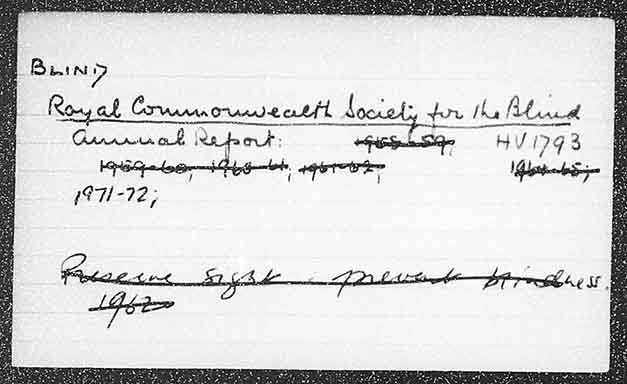 BLIND
Royal Commonwealth Society for the Blind
Annual Report: 1958-59, HV1793
1959-60, 1960-61, 1961-62, 1964-65;
1971-72;
Preserve sight - prevent blindness.
1962